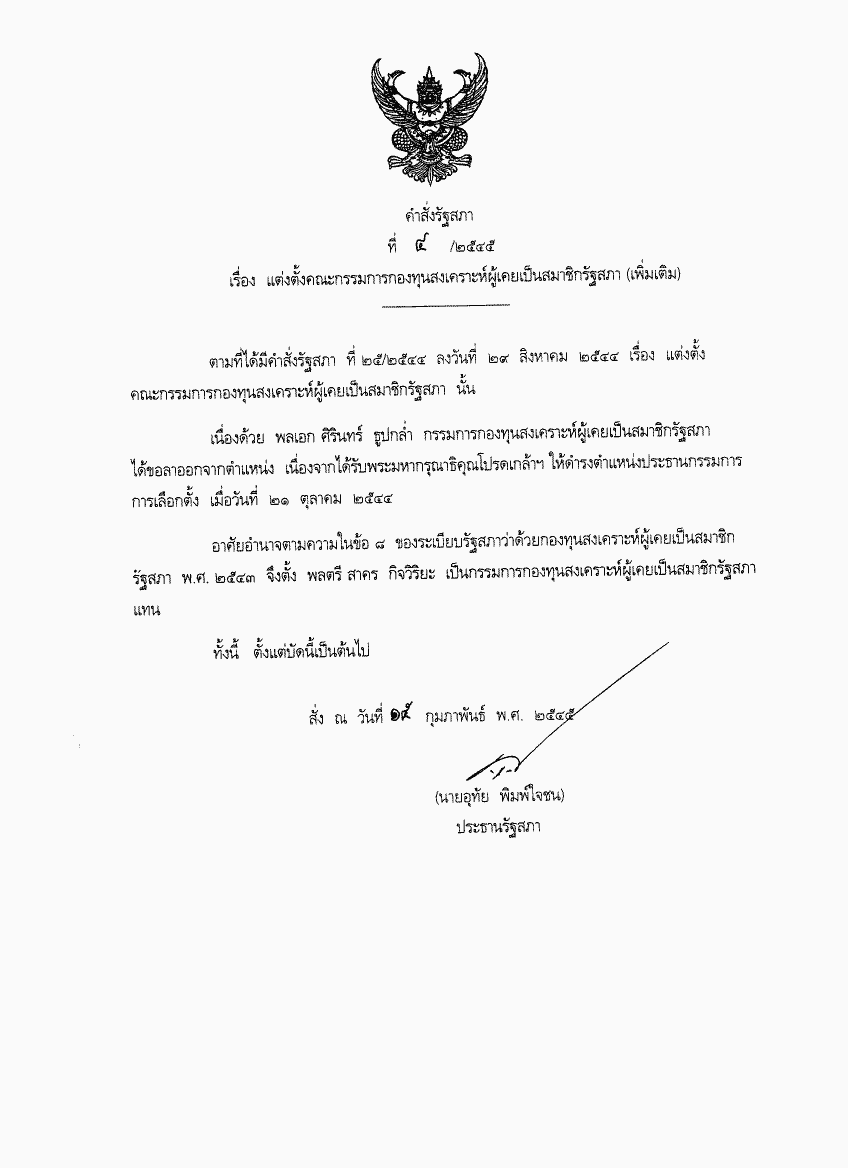 คำสั่งรัฐสภา
ที่ ๔ /๒๕๔๕
เรื่อง แต่งตั้งคณะกรรมการกองทุนสงเคราะห์ผู้เคยเป็นสมาชิกรัฐสภา (เพิ่มเติม)
ตามที่ได้มีคำสั่งรัฐสภา ที่ ๒๕/๒๕๔๔ ลงวันที่ ๒๙ สิงหาคม ๒๕๔๔ เรื่อง แต่งตั้ง
คณะกรรมการกองทุนสงเคราะห์ผู้เคยเป็นสมาชิกรัฐสภา นั้น
เนื่องด้วย พลเอก ศิรินทร์ ธูปกล่ำ กรรมการกองทุนสงเคราะห์ผู้เคยเป็นสมาชิกรัฐสภา
ได้ขอลาออกจากตำแหน่ง เนื่องจากได้รับพระมหากรุณาธิคุณโปรดเกล้าฯ ให้ดำรงตำแหน่งประธานกรรมการ
การเลือกตั้ง เมื่อวันที่ ๒๑ ตุลาคม ๒๕๔๔
อาศัยอำนาจตามความในข้อ ๘ ของระเบียบรัฐสภาว่าด้วยกองทุนสงเคราะห์ผู้เคยเป็นสมาชิก
รัฐสภา พ.ศ. ๒๕๔๓ จึงตั้ง พลตรี สาคร กิจวิริยะ เป็นกรรมการกองทุนสงเคราะห์ผู้เคยเป็นสมาชิกรัฐสภา
แทน
ทั้งนี้ ตั้งแต่บัดนี้เป็นต้นไป
สั่ง ณ วันที่ ๑๕ กุมภาพันธ์ พ.ศ. ๒๕๔๕
(นายอุทัย พิมพ์ใจชน)
ประธานรัฐสภา